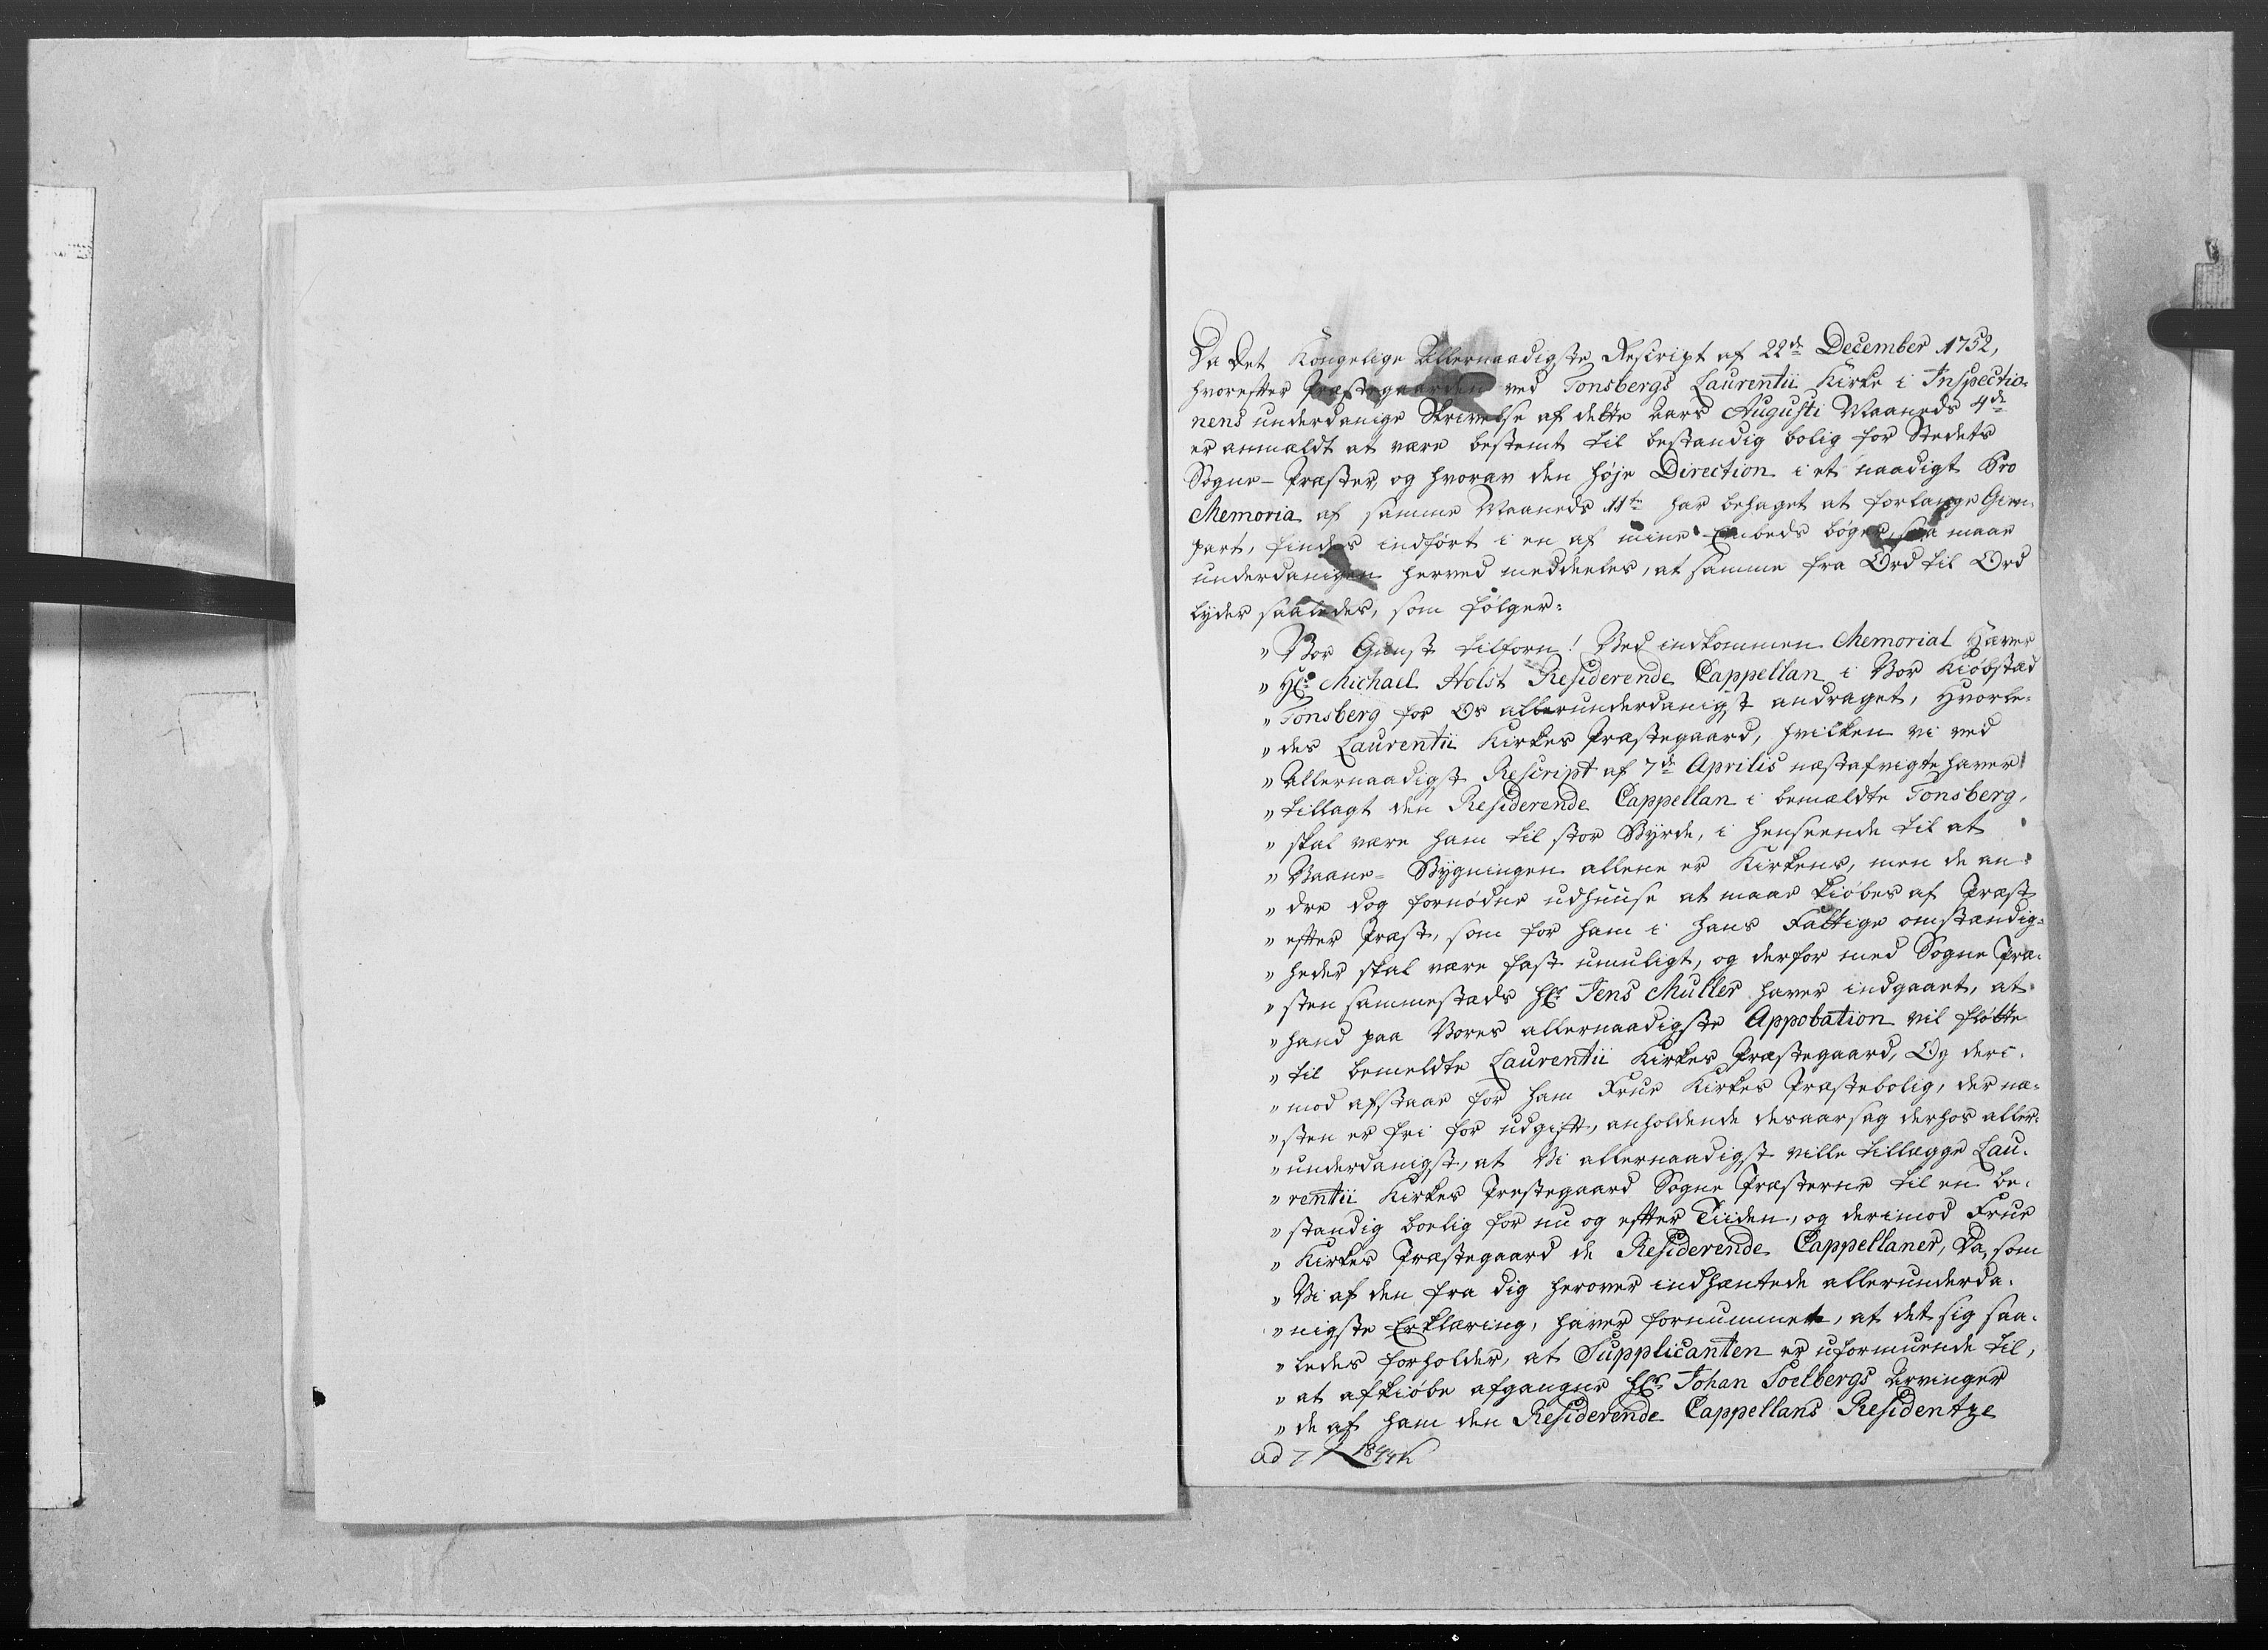 Da Det Kongelige Allernaadigste Rescript af 22de December 1752,
hvorefter Præstegaarden ved Tonsbergs Laurentii Kirke i Inspectio-
nens underdanige Skrivelse af dette Aars Augusti Maaneds 4de
er anmældt at være bestemt til bestandig bolig for Stedets
Sogne-Præster, og hvorav den høje Direction i et naadigt Pro
Memoria af samme Maaneds 11te har behaget at forlange Gien-
part, findes indført i en af mine Embeds bøger, saa maae
underdanigen herved meddeeles, at samme fra Ord til Ord
lyder saaledes, som følger:
"Vor Gunst tilforn! Ved indkommen Memorial Haver
"Hr. Michael Holst Residerende Cappellan i Vor Kiøbstæd
"Tonsberg for Os allerunderdanigst andraget, Hvorle-
"des Laurentii Kirkes Præstegaard, hvilken vi ved
"Allernaadigst Rescript af 7de Aprilis næstafvigte haver
"tillagt den Residerende Cappellan i bemældte Tonsberg,
"skal være ham til stor Byrde, i henseende til at
"Vaane-Bygningen allene er Kirkens, men de an-
"dre dog fornødne udhuuse at maae kiøbes af Præst
"efter Præst, som for ham i hans Fattige omstændig-
"heder skal være fast umuligt, og derfor med Sogne Præ-
"sten sammestæds Hr. Jens Muller haver indgaaet, at
"hand paa Vores allernaadigste Appobation vil fløtte
"til bemeldte Laurentii Kirkes Præstegaard, Og deri-
"mod afstaae for ham Frue Kirkes Præstebolig, der næ-
"sten er fri for udgift, anholdende desaarsag derhos aller-
"underdanigst, at Vi allernaadigst ville tillægge Lau-
"rentii Kirkes Præstegaard Sogne Præsterne til en be-
"standig boelig for nu og efter Tiiden, og derimod Frue
"Kirkes Præstegaard de Residerende Cappellaner, Da, som
"Vi af den fra dig herover indhæntede allerunderda-
"nigste Erklæring, haver fornummet, at det sig saa-
"ledes forholder, at Supplicanten er uformuende til,
"at afkiøbe afgangne Hr. Johan Soelbergs Arvinger
"de af ham den Residerende Cappellans Residentze
ad 7